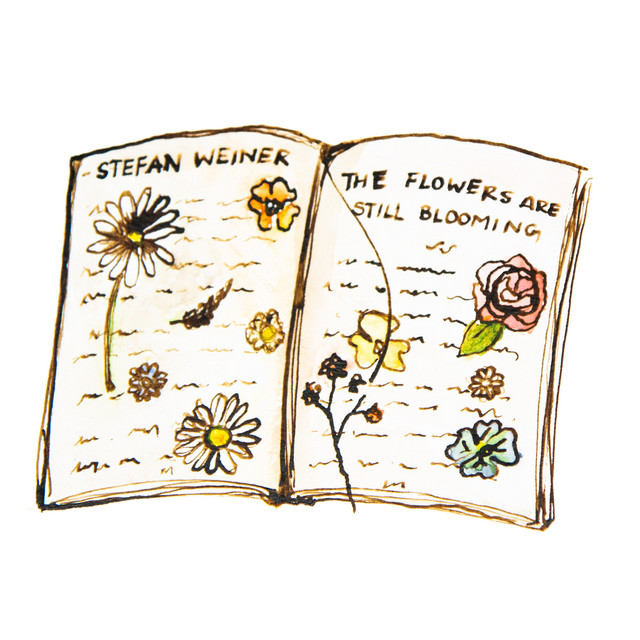 - STEFAN WEINER
THE FLOWERS ARE
STILL BLOOMING